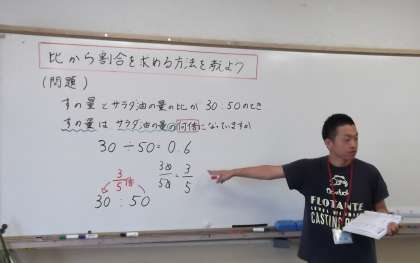 比から割合を求める方法を考えよう
(問題)
すの量とサラダ油の量の比が 30:50のとき
すの量はサラダ油の量の何倍になっていますか
30÷50=0.6
30/50=3/5
3/5倍
30:50
FLOTANTE
CASTING